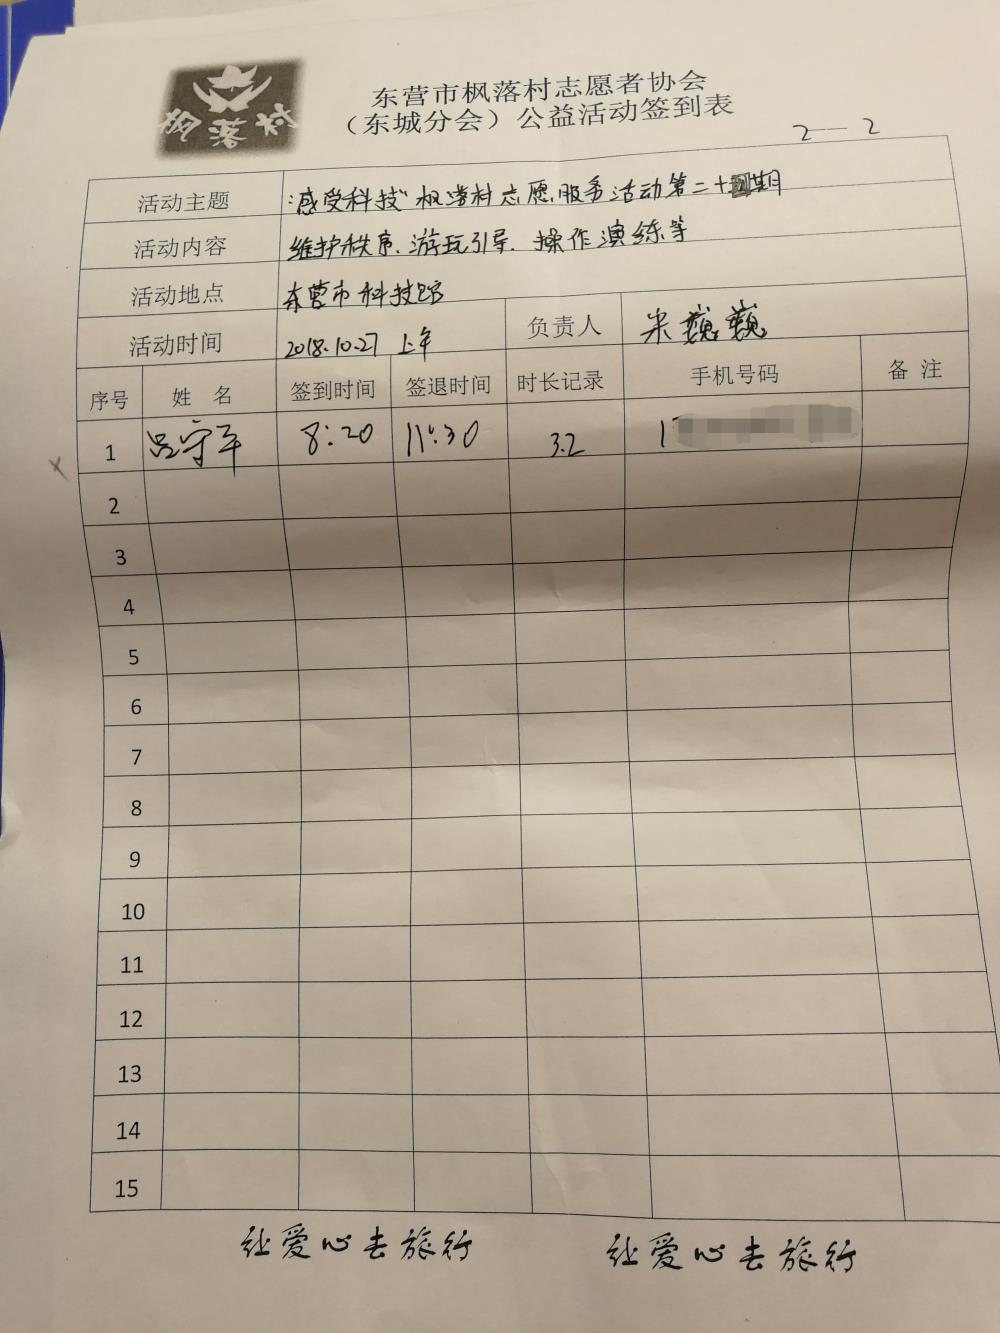 枫落村
东营市枫落村志愿者协会
（东城分会）公益活动签到表
2—2
活动主题 “感受科技”枫落村志愿服务活动第二十期
活动内容 维护秩序、游玩引导、操作演练等
活动地点 东营市科技馆
活动时间 2018.10.27 上午 负责人 米巍巍
序号 姓 名 签到时间 签退时间 时长记录 手机号码 备 注
1 吕守军 8:20 11:30 3.2 1
2
3
4
5
6
7
8
9
10
11
12
13
14
15
让爱心去旅行 让爱心去旅行